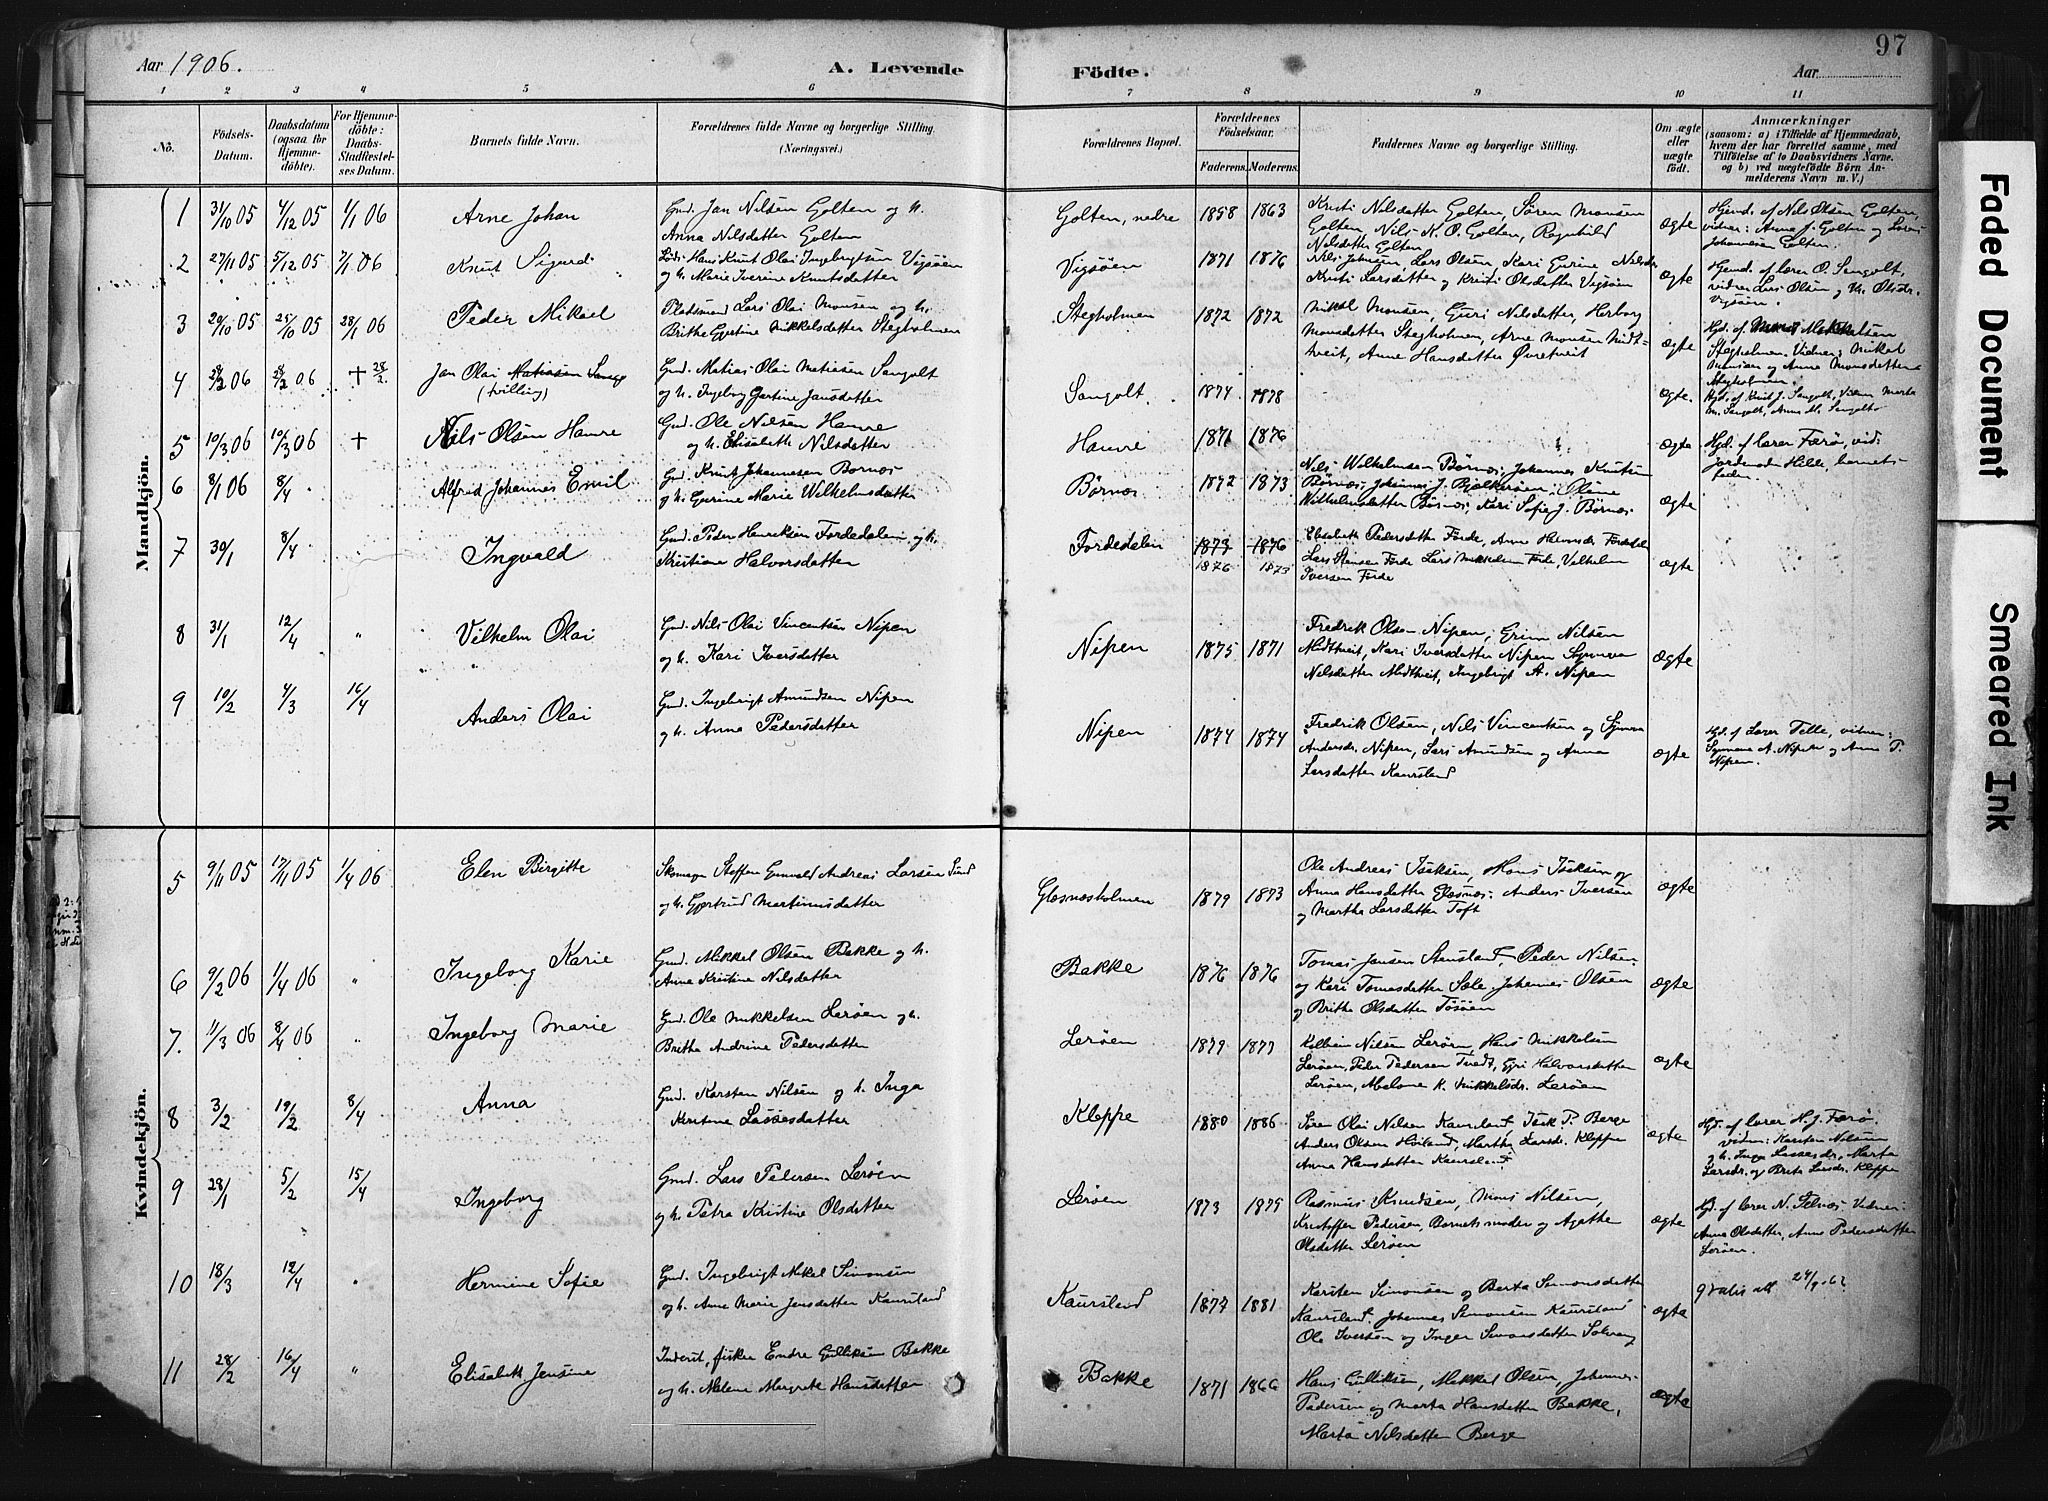 Aar 1906.
A. Levende Födte.
Aar
97
1 2 3 4 5 6 7 8 9 10 11
No.
Födsels-Datum.
Daabsdatum (ogsaa for Hjemme-döbte).
For Hjemme-döbte: Daabs-Stadfæstel-ses Datum.
Barnets fulde Navn.
Forældrenes fulde Navne og borgerlige Stilling.
(Næringsvei.)
Forældrenes Bopæl.
Forældrenes Födselsaar.
Faderens. Moderens.
Faddernes Navne og borgerlige Stilling.
Om ægte eller uægte födt.
Anmærkninger
(saasom: a) i Tilfælde af Hjemmedaab, hvem der har forrettet samme, med Tilföielse af to Daabsvidners Navne. og b) ved uægtefödte Börn An-melderens Navn m. V.)
Mandkjön.
1 31/10 05 4/12 05 1/1 06 Arne Johan
Gmd. Jan Nilsen Golten og h.
Anna Nilsdatter Golten
Golten, nedre 1858 1863
Kristi Nilsdatter Golten, Sören Monsen
Golten, Nils K. O. Golten, Ragnhild
Nilsdatter Golten
ægte
Hjemd. af Nils Olsen Golten,
vidner: Anna J. Golten og Lars
Johannesen Golten.
2 27/11 05 5/12 05 7/1 06 Knut Sigurd
Hans Knut Olai Ingebrigtsen Vigsöen
og h. Marie Iverine Knutsdatter
Vigsöen 1871 1876
Nils Johnsen, Lars Olsen, Kari Gurine Nilsdr
Kristi Larsdatter og Kristi Olsdatter Vigsöen
ægte
Hjemd. af lærer O. Sangolt,
vidner Lars Olsen og M. Olsdr.
Vigsöen.
3 20/10 05 25/10 05 28/1 06 Peder Mikael
Pladsmand Lars Olai Monsen og h.
Brithe Gjertine Mikkelsdatter Stegholmen
Stegholmen 1872 1872
Mikal Monsen, Guri Nilsdatter, Herborg
Monsdatter Stegholmen, Arne Monsen Midt-
tveit, Anne Hansdatter Övretveit
ægte
Hjd. af Mikkelsen
Stegholmen. Vidner: Mikal
Monsen og Anna Monsdatter
Stegholmen.
4 28/2 06 28/2 06 † 28/2 Jan Olai Matiasen
(tvilling)
Gmd. Matias Olai Matiesen Sangolt
og h. Ingeborg Gurtine Jansdatter
Sangolt 1874 1878
ægte.
Hjd. af Knut J. Sangolt, Vidner Marta
M. Sangolt, Anna M. Sangolt
5 10/3 06 10/3 06 † Nils Olsen Hamre
Gmd. Ole Nilsen Hamre
og h. Elisabeth Nilsdatter
Hamre 1871 1876
ægte
Hjd. af lærer Færö, vid:
jordemoder Hille, barnets
fader.
6 8/1 06 8/4 Alfred Johannes Emil
Gmd. Knut Johannesen Börnes
og h. Gurine Marie Wilhelmsdatter
Börnes 1872 1873
Nils Wilhelmsen Börnes, Johannes Knutsen
Börnes, Johannes J. Bjelkeröen, Oline
Wilhelmsdatter Börnes, Kari Sofie J. Börnes
ægte
7 30/1 8/4 Ingvald
Gmd. Peder Henriksen Fordedalen og h.
Kristiane Halvorsdatter
Fordedalen 1873 1876
1876 1873
Elisabeth Pedersdatter Förde, Anne Fördedalen
Lars Stensen Förde, Lars Mikkelsen Förde, Vilhelm
Iversen Förde
ægte
8 31/1 12/4 " Vilhelm Olai
Gmd. Nils Olai Vincentsen Nipen
og h. Kari Iversdatter
Nipen 1875 1871
Fredrik Olsen Nipen, Nilsen
Midttveit, Kari Iversdatter Nipen Synneva
Nilsdatter Midttveit, Ingebrigt A. Nipen
ægte
9 10/2 4/3 16/4 Anders Olai
Gmd. Ingebrigt Amundsen Nipen
og h. Anna Pedersdatter
Nipen 1874 1874
Fredrik Olsen, Nils Vincentsen og Synneva
Andersdr. Nipen, Lars Amundsen og Anna
Larsdatter Kaursland
ægte
Hjd. af Lærer Telle, vidner:
Synneva A. Nipen og Anna P.
Nipen.
Kvindekjön.
5 9/11 05 17/11 05 1/4 06 Elen Birgitte
Skomager Steffen Gunvald Andreas Larsen Sund
og h. Gjertrud Martinusdatter
Glesnesholmen 1879 1873
Ole Andreas Isaksen, Hans Isaksen og
Anna Hansdatter Glesnes, Anders Iversen
og Martha Larsdatter Toft
ægte
6 9/2 06 1/4 06 " Ingeborg Karie
Gmd. Mikkel Olsen Bakke og h.
Anna Kristine Nilsdatter
Bakke 1876 1876
Tomas Jansen Stensland, Peder Nilsen
og Kari Tomasdatter Sæle, Johannes Olsen
og Britha Olsdatter Tösöen
ægte
7. 11/3 06 8/4 06 " Ingeborg Marie
Gmd. Ole Mikkelsen Leröen og h.
Britha Andrine Pedersdatter
Leröen 1879 1877
Kolbein Nilsen Leröen, Hans Mikkelsen
Leröen, Peder Pedersen Tvedt, Guri Halvorsdatter
Leröen, Abelone K. Mikkelsdr. Leröen
ægte
8 3/2 19/2 8/4 Anna
Gmd. Karsten Nilsen og h. Inga
Kristine Lassesdatter
Kleppe 1880 1886
Sören Olai Nilsen Kaursland, Isak P. Berge
Anders Olsen Höiland, Martha Larsdr. Kleppe
Anna Hansdatter Kaursland
ægte
Hjd. af lærer H. J. Færö,
vidner: Karsten Nilsen
og h. Inga Lassesdr, Marta
Larsdr. og Brita Larsdr. Kleppe
9 28/1 5/2 15/4 Ingeborg
Gmd. Lars Petersen Leröen
og h. Petra Kristine Olsdatter
Leröen 1873 1875
Rasmus Knudsen, Mons Nilsen,
Kristoffer Pedersen, Barnets moder og Agathe
Olsdatter Leröen
ægte
Hjd. af lærer N. Vidner:
Anna Olsdatter, Anna Pedersdatter
Leröen.
10 18/3 12/4 " Hermine Sofie
Gmd. Ingebrigt Mikal Simonsen
og h. Anne Marie Jensdatter Kaursland
Kaursland 1877 1881
Karsten Simonsen og Berta Simonsdatter
Kaursland, Johannes Simonsen Kaursland
Ole Iversen og Inger Simonsdatter Solvang
ægte
gratis att 24/9-62
11 28/2 16/4 " Elisabeth Jensine
Inderst, fisker Endre Gulliksen Bakke
og h. Malene Margrete Hansdatter
Bakke 1871 1866
Hans Gulliksen, Mikkel Olsen, Johannes
Pedersen og Marta Hansdatter Bakke,
Marta Nilsdatter Berge
ægte
Faded Document
Smeared Ink